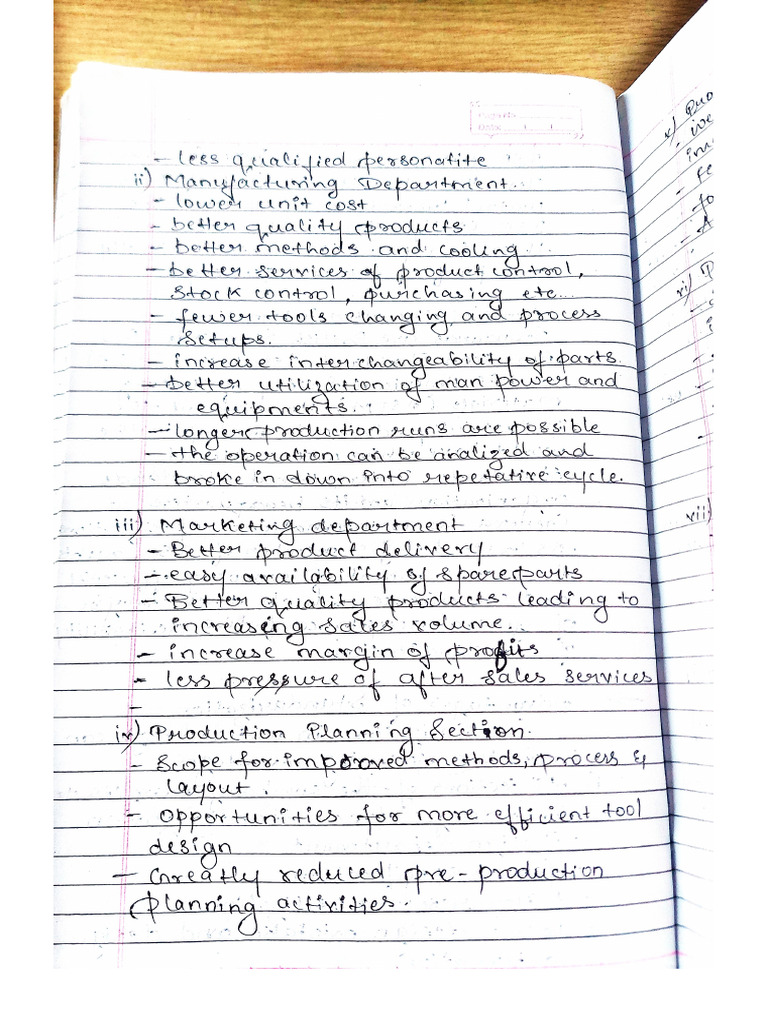 - less qualified personatite
ii) Manufacturing Department.
- lower unit cost
- better quality products
- better methods and cooling
- better services of product control,
stock control, purchasing etc...
- fewer tools changing and process
setups.
- increase interchangeability of parts
- better utilization of man power and
equipments.
- longer production runs are possible
- the operation can be analized and
broke in down into repetative cycle.
iii) Marketing department
- Better product delivery
- easy availability of spare parts
- Better quality products leading to
increasing sales volume.
- increase margin of profits
- less pressure of after sales services
-
iv) Production Planning Section.
- Scope for improved methods, process &
layout.
- opportunities for more efficient tool
design
- Greatly reduced pre-production
planning activities.
v)
vi)
vii)